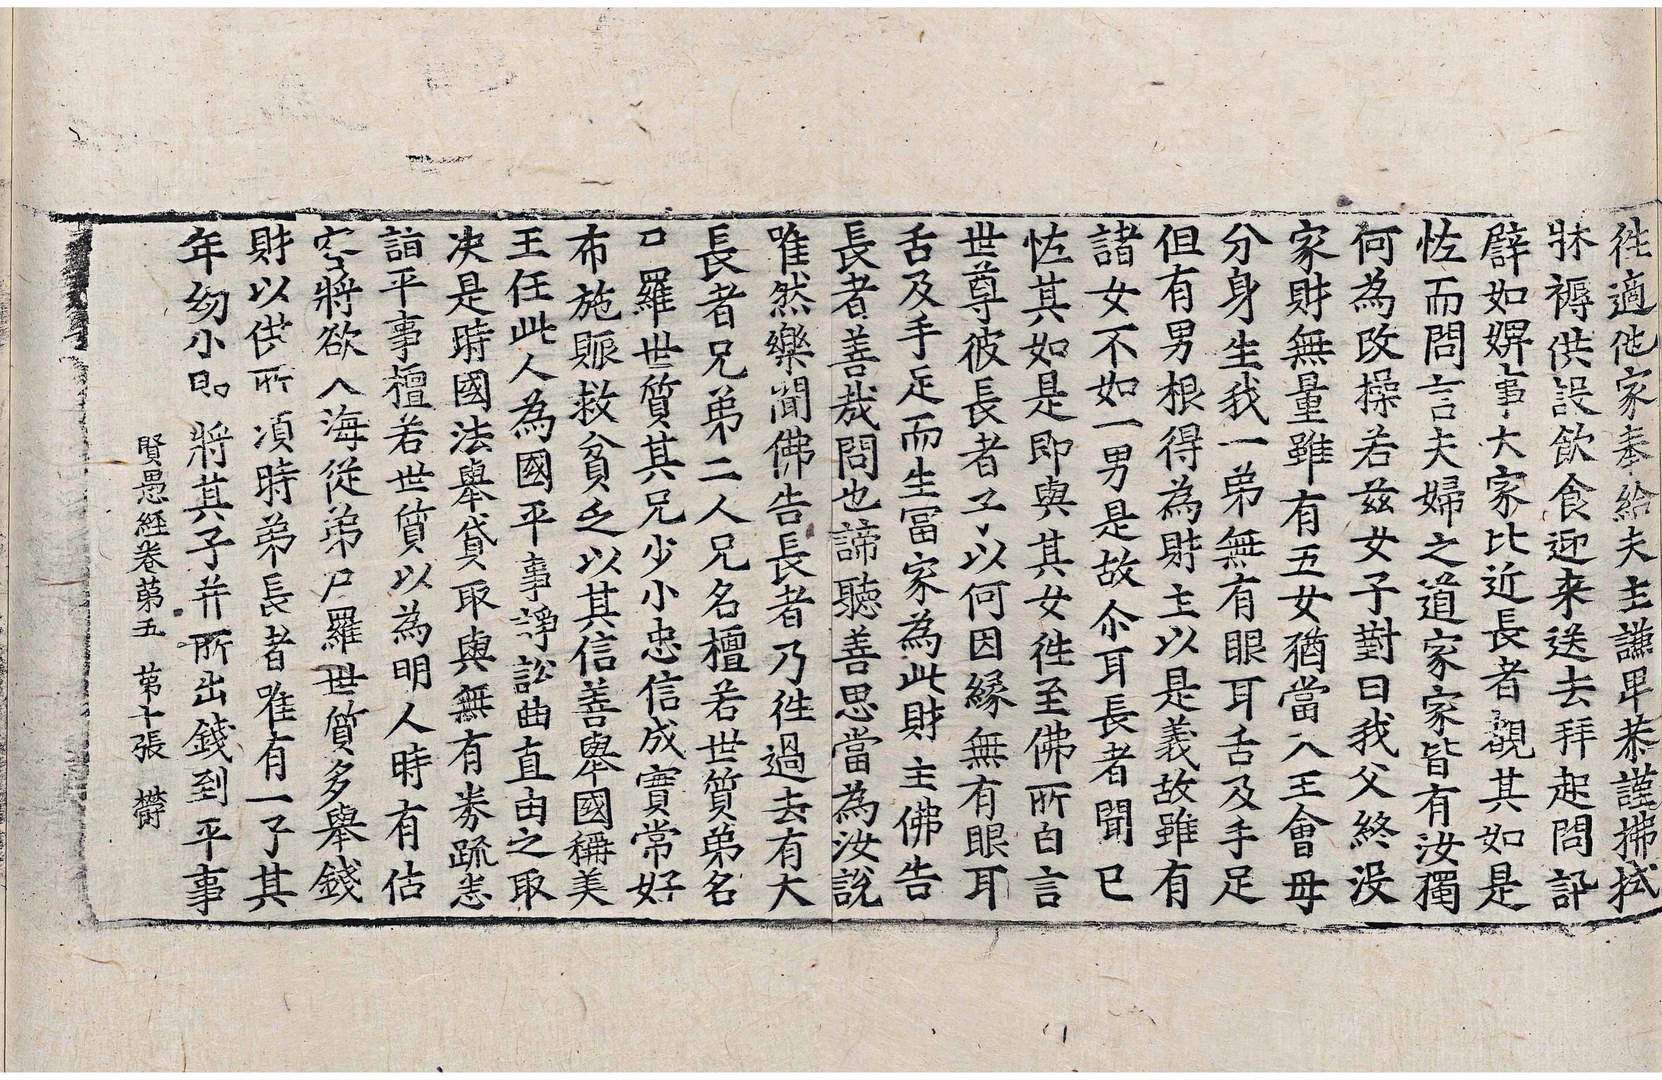 徃適他家奉給夫主謙卑恭謹拂拭
牀褥供設飮食迎来送去拜起問訊
譬如婢事大家比近長者覩其如是
恠而問言夫婦之道家家皆有汝獨
何為改操若兹女子對曰我父終没
家財無量雖有五女猶當入王會母
分身生我一弟無有眼耳舌及手足
但有男根得為財主以是義故雖有
諸女不如一男是故尒耳長者聞已
恠其如是即與其女徃至佛所白言
世尊彼長者子以何因緣無有眼耳
舌及手足而生冨家為此財主佛告
長者善哉問也諦聽善思當為汝說
唯然樂聞佛告長者乃徃過去有大
長者兄弟二人兄名檀若世質弟名
尸羅世質其兄少小忠信成實常好
布施賑救貧乏以其信善舉國稱美
王任此人為國平事諍訟曲直由之取
决是時國法舉貸取與無有券疏悉
詣平事檀若世質以為明人時有估
客將欲入海從弟尸羅世質多舉錢
財以供所湏時弟長者唯有一子其
年㓜小即將其子并所出錢到平事
賢愚經卷第五 第十張 欝